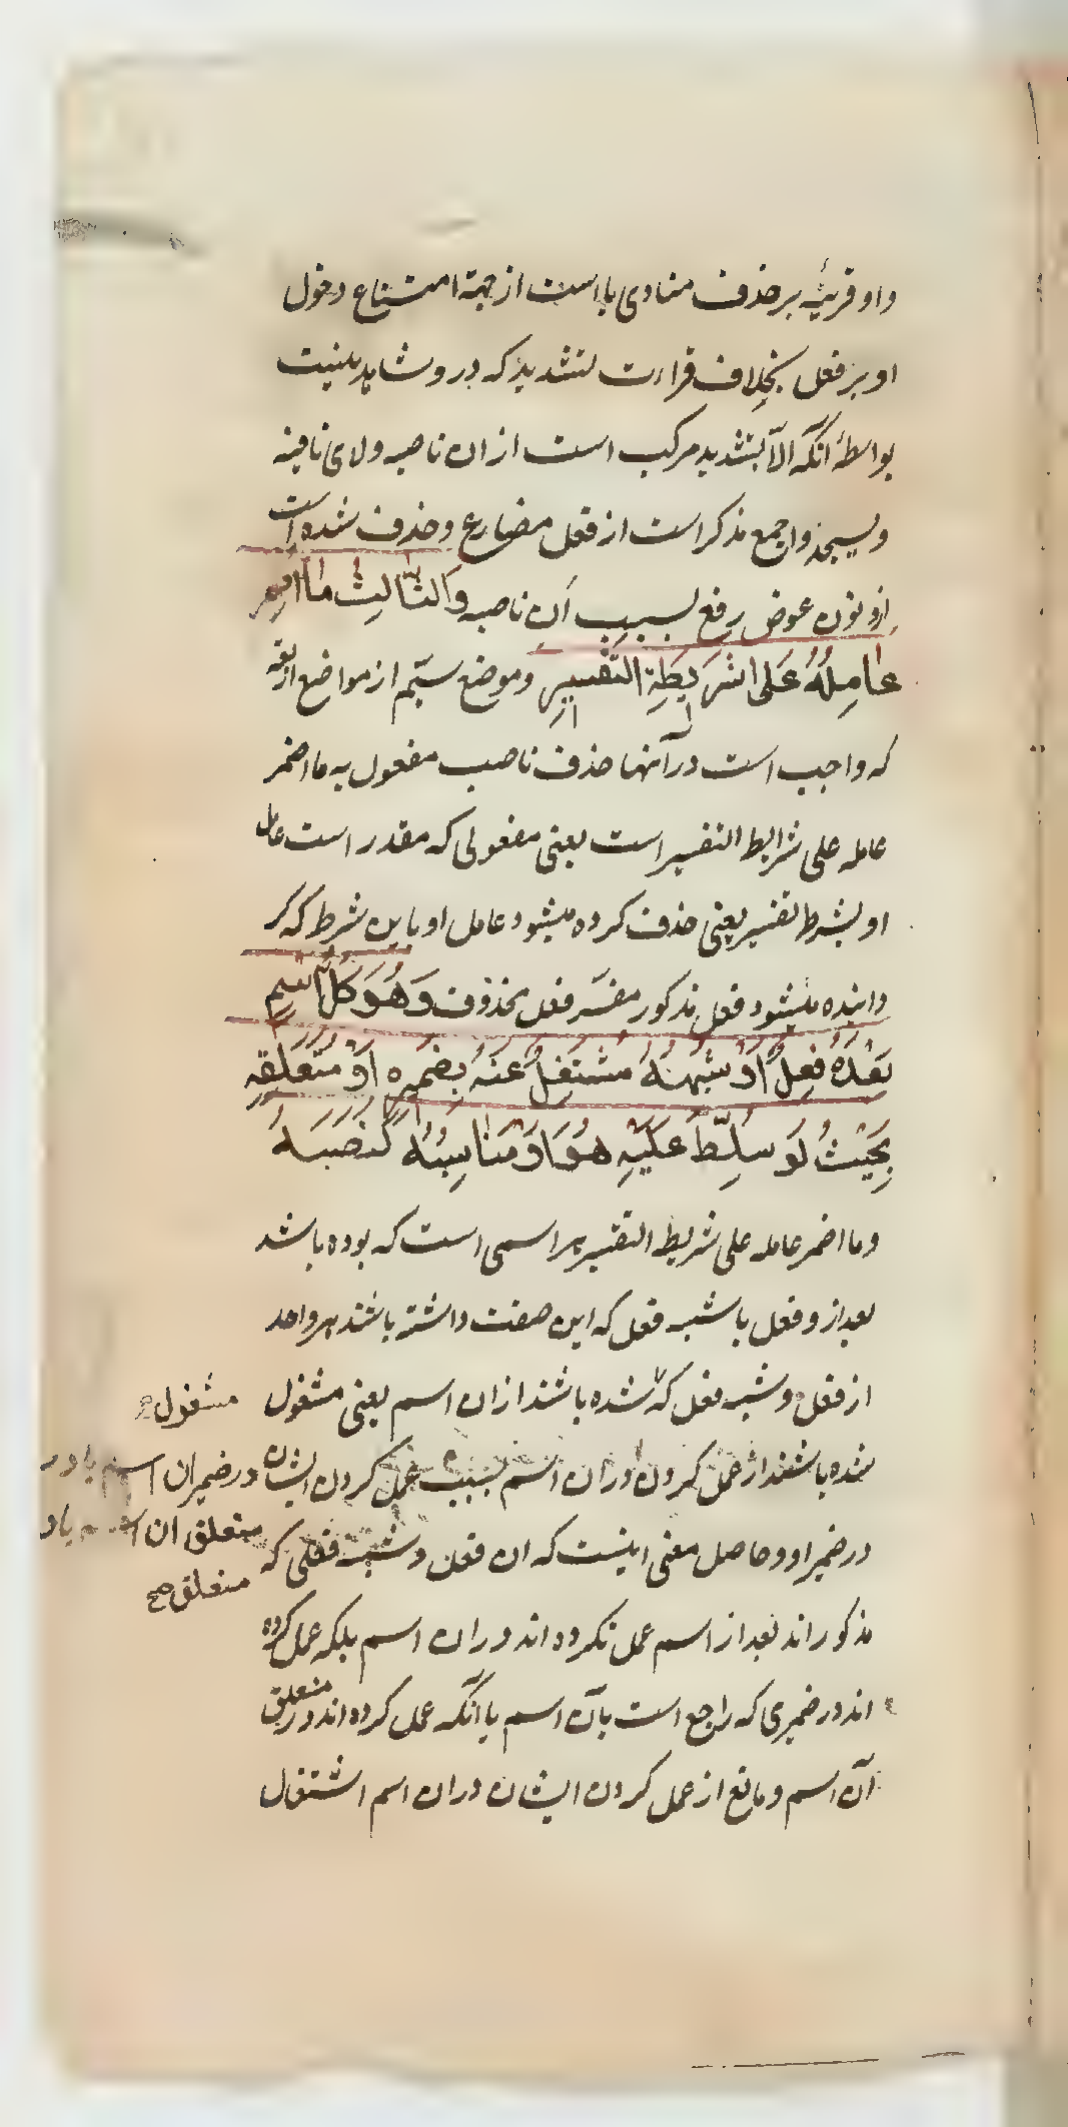 و او قرینهٔ بر حذف منادی یا است از جهة امتناع دخول
او بر فعل بخلاف قراءت بتشدید که درو شاهد نیست
بواسطهٔ آنکه الّا بتشدید مرکب است از ان ناصبه و لای نافیه
و یسجدوا جمع مذکر است از فعل مضارع و حذف شده است
ازو نون عوض رفع بسبب اَن ناصبه وَالثّالِثُ ما اُضمِر
عامِلُهُ عَلی شَریطَةِ التَّفسیرِ و موضع سیّم از مواضع اربعه
که واجب است در آنها حذف ناصب مفعول به ما اضمر
عامله علی شرایط التفسیر است یعنی مفعولی که مقدر است عامل
او بشرط تفسیر یعنی حذف کرده میشود عامل او باین شرط که کر
دانیده میشود فعل مذکور مفسّر فعل محذوف وَهُوَ کُلُّ اسْمٍ
بَعْدَهُ فِعلٌ اَوْ شِبْهُهُ مُشْتَغِلٌ عَنْهُ بِضَمیرِهِ اَوْ مُتَعَلِّقِهِ
بِحَیْثُ لَوْ سُلِّطَ عَلَیْهِ هُوَ اَوْ مُناسِبُهُ لَنَصَبَهُ
و ما اضمر عامله علی شریطه التفسیر هر اسمی است که بوده باشد
بعد ازو فعل یا شبه فعل که این صفت داشته باشند هر واحد
از فعل و شبه فعل که شده باشند ازان اسم یعنی مشغول
مشغول
شده باشند از عمل کردن دران اسم بسبب عمل کردن ایشان در ضمیر ان اسم یا در
متعلق ان اسم یا در
در ضمیر او و حاصل معنی اینست که ان فعل و شبه فعلی که
متعلق صح
مذکور اند بعد از اسم عمل نکرده اند دران اسم بلکه عمل کرده
اند در ضمیری که راجع است بآن اسم یا آنکه عمل کرده اند در متعلق
آن اسم و مانع از عمل کردن ایشان دران اسم اشتغال